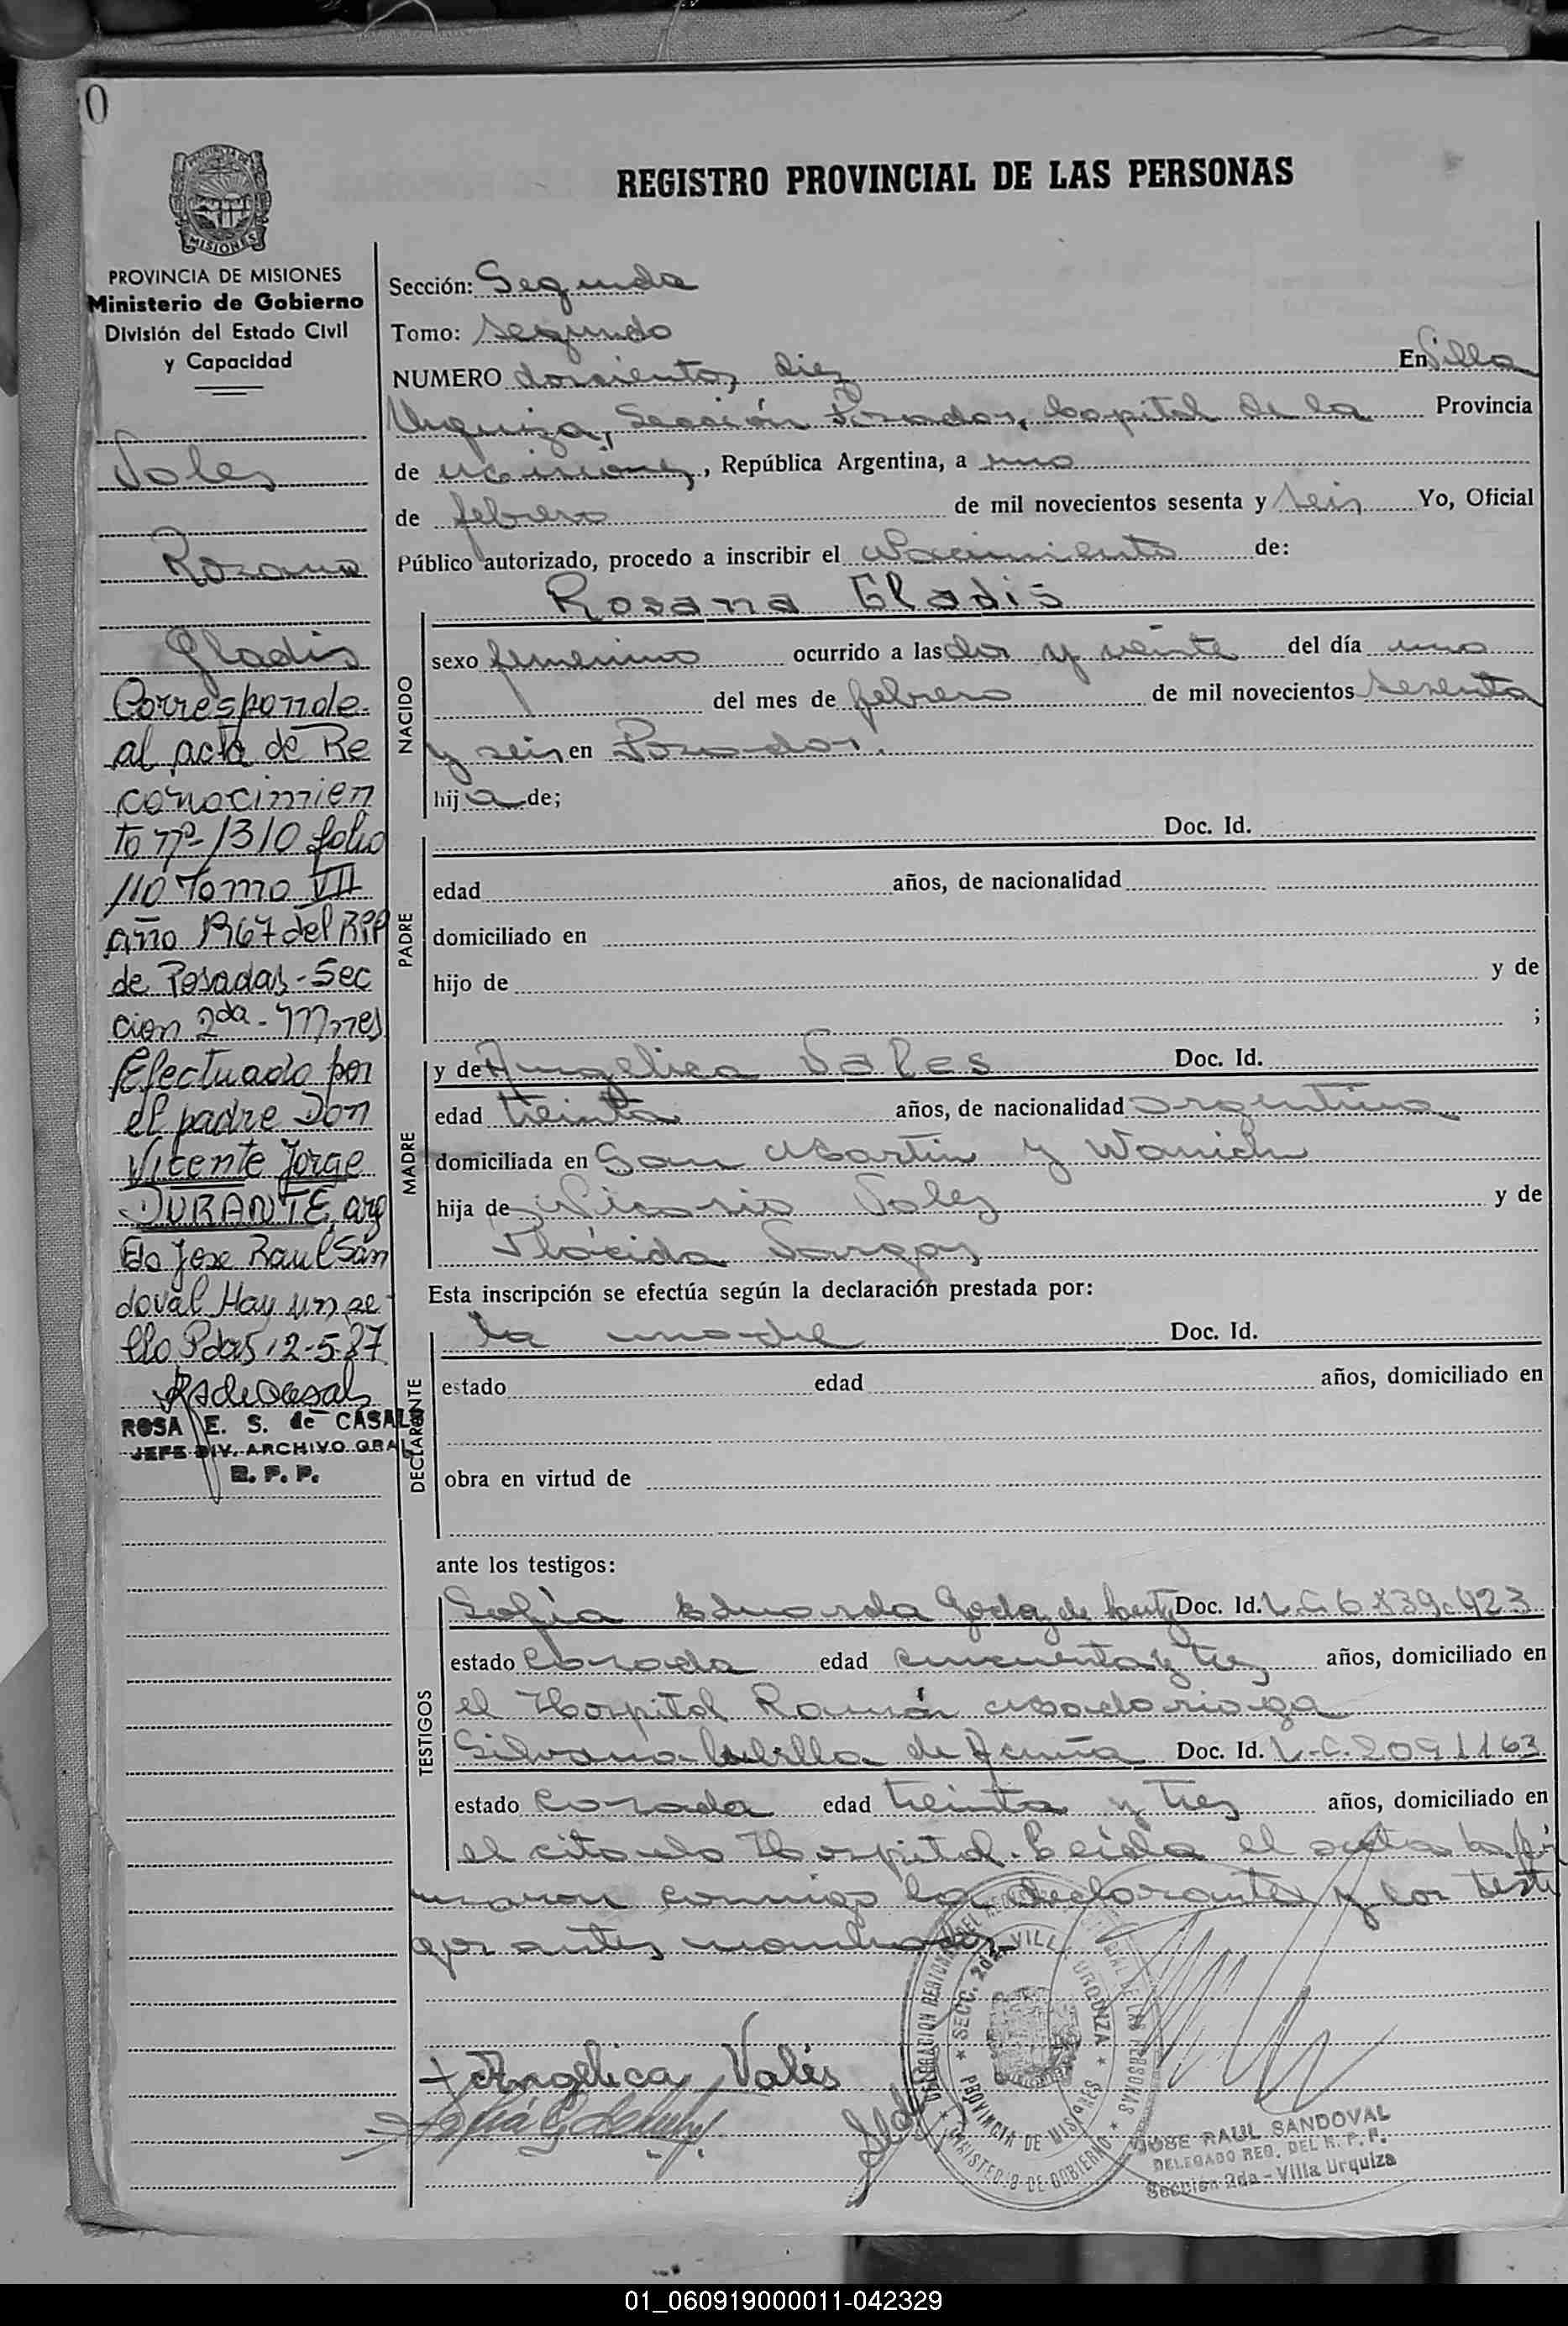 0
PROVINCIA DE MISIONES
REGISTRO PROVINCIAL DE LAS PERSONAS
PROVINCIA DE MISIONES
Ministerio de Gobierno
División del Estado Civil
y Capacidad
Vales
Rosana
Gladis
Corresponde
al acta de Re
conocimien
to nº 1310 folio
110 Tomo VII
año 1967 del RPP
de Posadas-Sec
cion 2da - Mnes
Efectuado por
el padre Don
Vicente Jorge
DURANTE, arg
Fdo Jose Raul San
doval Hay un se
llo Pdas, 2-5-87
ROSA E. S. de CASALS
JEFE DIV. ARCHIVO GRAL
R. P. P.
Sección: Segunda
Tomo: segundo
NUMERO doscientos diez En Villa
Urquiza, Sección Posadas, Capital de la Provincia
de Misiones, República Argentina, a uno
de febrero de mil novecientos sesenta y seis Yo, Oficial
Público autorizado, procedo a inscribir el Nacimiento de:
NACIDO
Rosana Gladis
sexo femenino ocurrido a las dos y veinte del día uno
del mes de febrero de mil novecientos sesenta
y seis en Posadas.
hija de;
PADRE
Doc. Id.
edad años, de nacionalidad
domiciliado en
hijo de y de
;
MADRE
y de Angelica Vales Doc. Id.
edad treinta años, de nacionalidad argentina
domiciliada en San Martin y Wanich
hija de Nicasio Vales y de
Plácida Vargas
Esta inscripción se efectúa según la declaración prestada por:
DECLARANTE
la madre Doc. Id.
estado edad años, domiciliado en
obra en virtud de
ante los testigos:
TESTIGOS
Sofia Eduarda Godoy de Doc. Id. L.C 6.839.423
estado Casada edad cincuenta y tres años, domiciliado en
el Hospital Ramón Madariaga
Silvana Cubilla de Acuña Doc. Id. L.C. 2091163
estado Casada edad treinta y tres años, domiciliado en
el citado Hospital. Leida el acta la fir
maron conmigo la declarante y los testi
gos antes nombrados
Angélica Valés
DELEGACION REGIONAL DEL REGISTRO PROVINCIAL DE LAS PERSONAS
MINISTERIO DE GOBIERNO
SECC. 2da VILLA URQUIZA
PROVINCIA DE MISIONES
JOSE RAUL SANDOVAL
DELEGADO REG. DEL R. P. P.
Sección 2da - Villa Urquiza
01_060919000011-042329